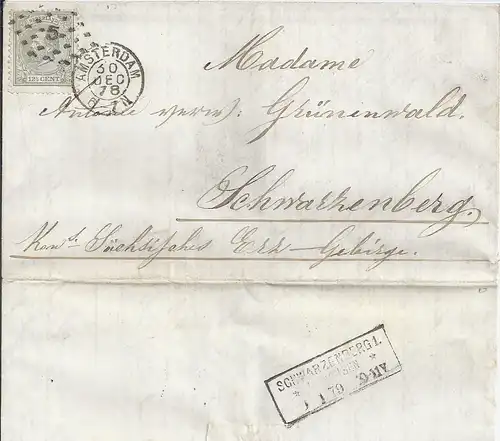 5
12½ CENT
AMSTERDAM
30
DEC
78
Madame
verw. Grünenwald.
Schwarzenberg.
Sächsisches Erz-Gebirge.
SCHWARZENBERG 1.
1 1 79